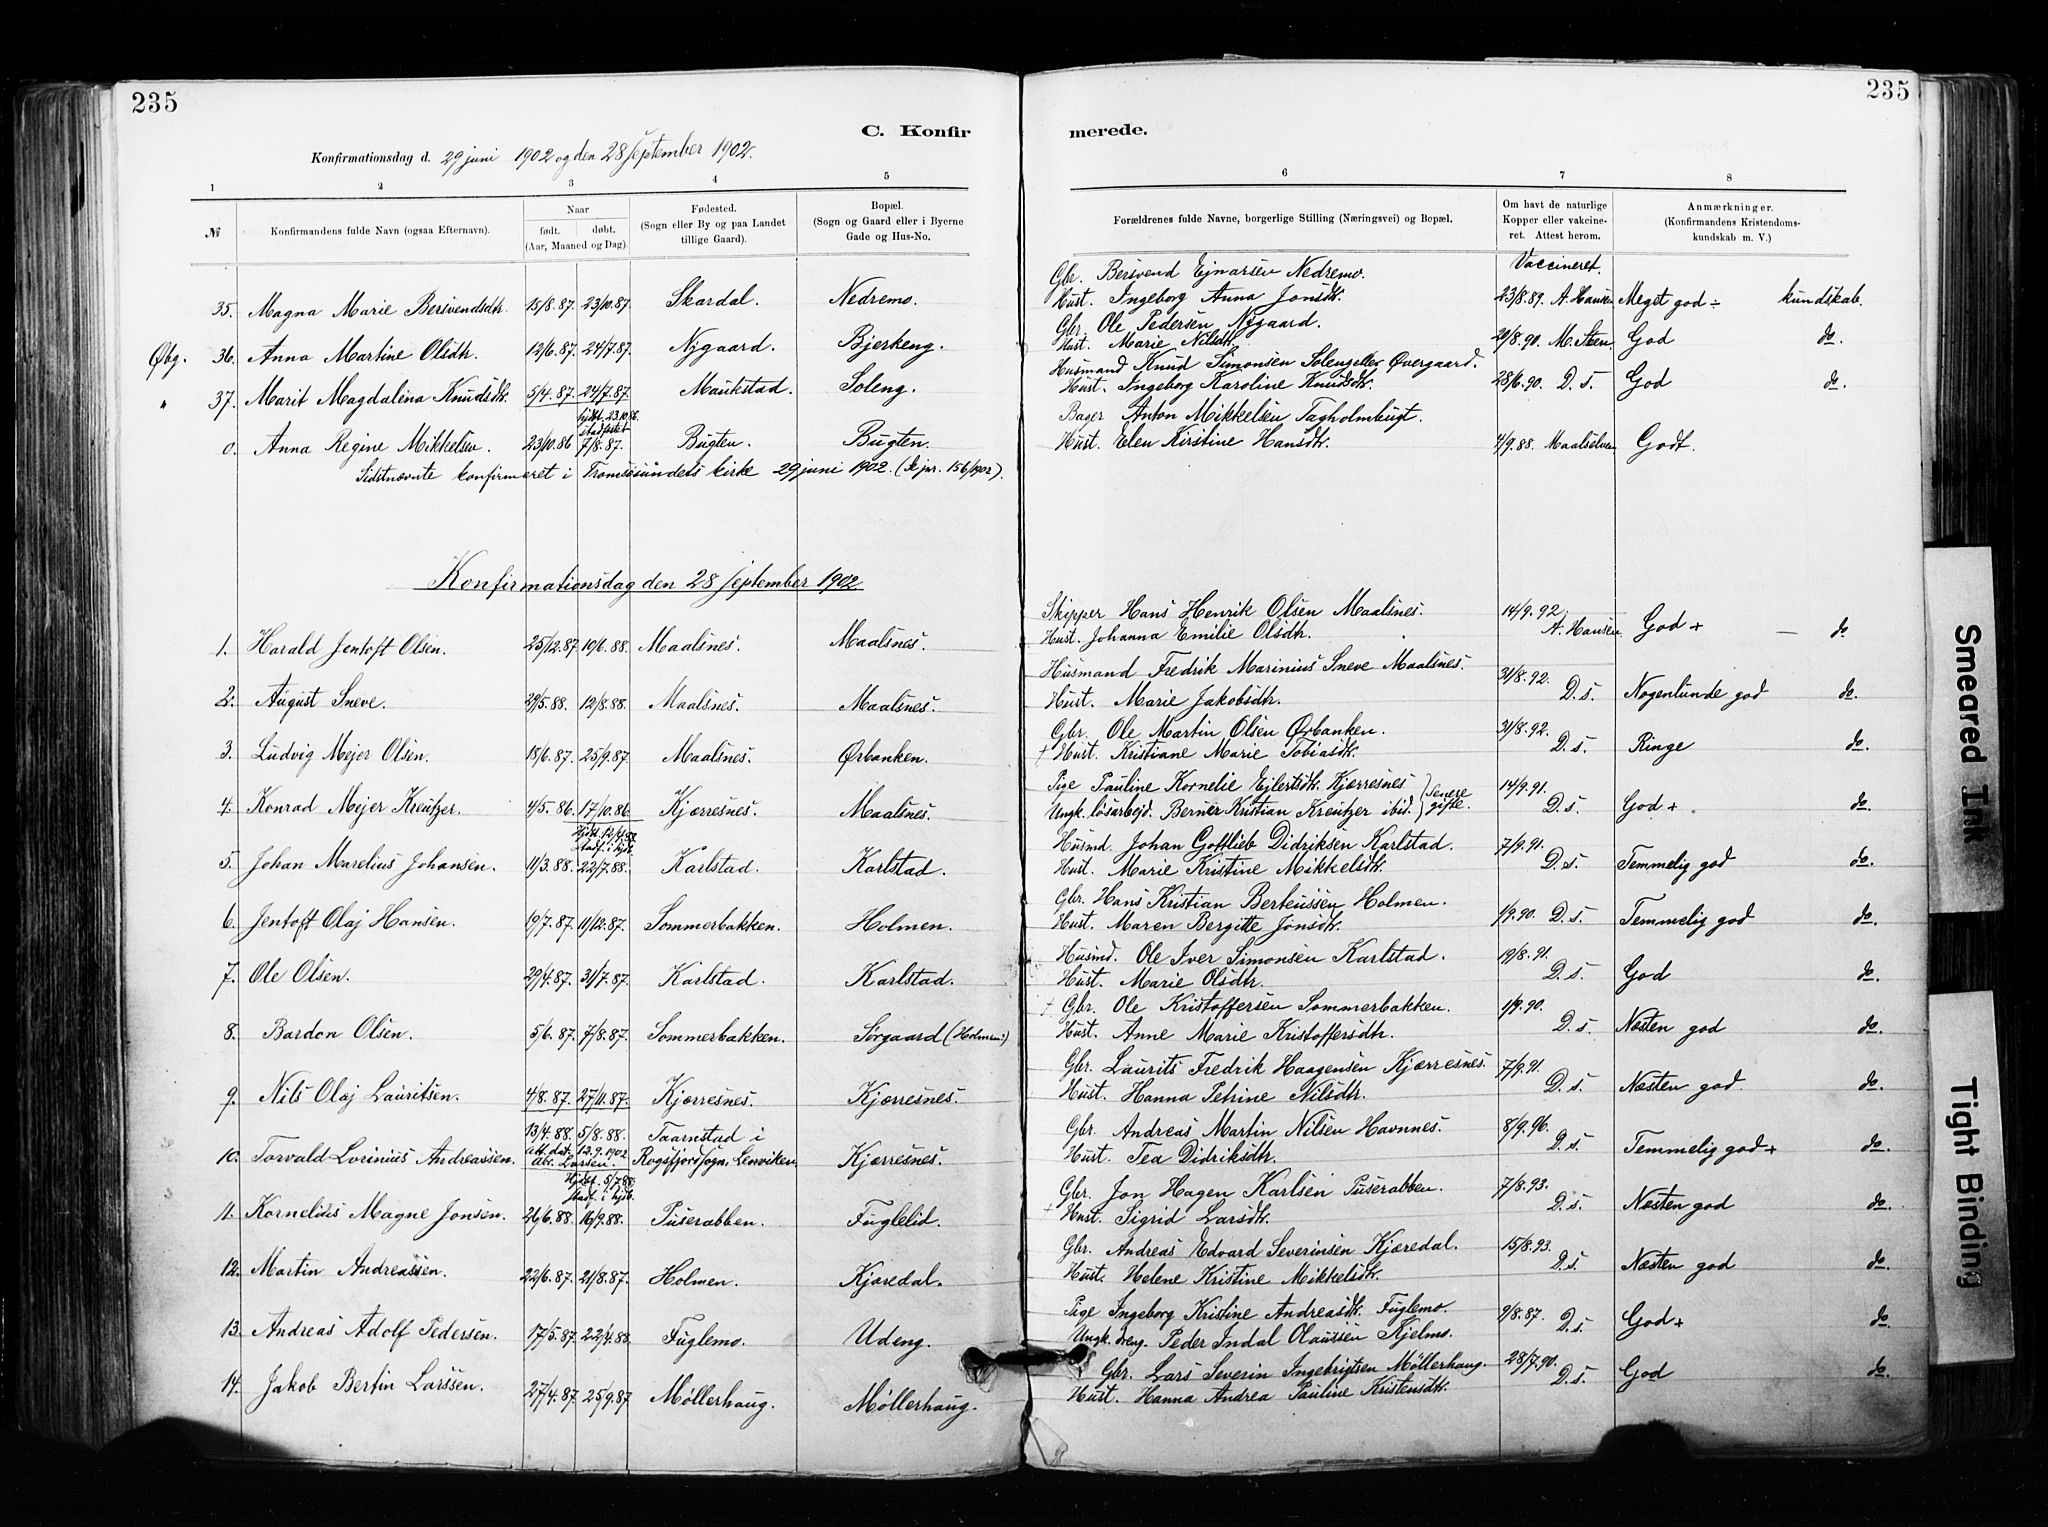 235
C. Konfir
Konfirmationsdag d. 29 juni 1902 og den 28 September 1902.
1 2 3 4 5
№ Konfirmandens fulde Navn (ogsaa Efternavn). Naar født. døbt. (Aar, Maaned og Dag). Fødested. (Sogn eller By og paa Landet tillige Gaard). Bopæl. (Sogn og Gaard eller i Byerne Gade og Hus-No.
35. Magna Marie Bersvendsdtr. 15/8.87. 23/10.87. Skardal. Nedremo.
Øbg. 36. Anna Martine Olsdtr. 12/6.87. 24/7.87. Nygaard. Bjerkeng.
" 37. Marit Magdalena Knudsdtr. 5/4.87. 24/7.87. Maukstad. Soleng.
hjdbt. 23.10.86. stadfæstet
0. Anna Regine Mikkelsen. 23/10.86 7/8.87. Bugten. Bugten.
Sidstnævnte konfirmeret i Tromsøsundets kirke 29 juni 1902. (kjnr. 156/1902).
Konfirmationsdag den 28 September 1902
1. Harald Jentoft Olsen. 25/12.87 10/6.88. Maalsnes. Maalsnes.
2. August Sneve. 29/5.88. 12/8.88. Maalsnes. Maalsnes.
3. Ludvig Mejer Olsen. 18/6.87. 25/9.87. Maalsnes. Ørbanken.
4. Konrad Mejer Kreutzer. 4/5.86. 17/10.86. Kjærresnes. Maalsnes.
Hjdbt. 12/4.88. stadf. i hjdb.
5. Johan Marelius Johansen. 11/3.88. 22/7.88. Karlstad. Karlstad.
6. Jentoft Olaj Hansen. 19/7.87. 11/12.87. Sommerbakken. Holmen.
7. Ole Olsen. 29/4.87. 31/7.87. Karlstad. Karlstad.
8. Bardon Olsen. 5/6.87. 7/8.87. Sommerbakken. Sørgaard (Holmen)
9. Nils Olaj Lauritsen. 4/8.87. 27/11.87. Kjærresnes. Kjærresnes.
13/4.88. 5/8.88. Taarnstad i
10. Torvald Lorinius Andreassen. Att. dat. 12.9.1902 Abr. Larsen. Rogsfjordsogn, Lenviken Kjærresnes.
Hjdbt. 5/7 88. stadf. i hjdb.
11. Kornelius Magne Jonsen. 26/6.88. 16/9.88. Puserabben. Fuglelid.
12. Martin Andreassen. 22/6.87. 21/8.87. Holmen. Kjæredal.
13. Andreas Adolf Pedersen. 17/5.87. 22/4.88. Fuglemo. Udeng.
14. Jakob Bertin Larssen. 27/4.87. 25/9.87 Møllerhaug. Møllerhaug.
235
merede.
6 7 8
Forældrenes fulde Navne, borgerlige Stilling (Næringsvei) og Bopæl. Om havt de naturlige Kopper eller vakcineret. Attest herom. Anmærkninger. (Konfirmandens Kristendomskundskab m. V.)
Gbr. Bersvend Ejnarsen Nedremo. Vaccineret.
Hust. Ingeborg Anna Jonsdtr. 23/8.89. A. Hansen Meget god ÷ kundskab.
Gbr. Ole Pedersen Nygaard.
Hust. Marie Nilsdtr. 20/8.90. M. Steen. God do.
Husmand Knud Simonsen Soleng eller Øvergaard.
Hust. Ingeborg Karoline Knudsdtr. 28/6.90. D. s. God do.
Bager Anton Mikkelsen Tagholmbugt.
Hust. Elen Kirstine Hansdtr. 4/9.88. Maalselven Godt.
Skipper Hans Henrik Olsen Maalsnes. 14/9.92.
Hust. Johanna Emilie Olsdtr. A. Hansen. God + — do
Husmand Fredrik Marinius Sneve Maalsnes. 31/8.92.
Hust. Marie Jakobsdtr. D. s. Nogenlunde god do.
Gbr. Ole Martin Olsen Ørbanken. 31/8.92.
+ Hust. Kristiane Marie Tobiasdtr. D. s. Ringe do.
Pige Pauline Kornelie Ejlertsdtr. Kjærresnes. 14/9.91.
Ungk. løsarbejd. Berner Kristian Kreutzer ibid. } senere gifte. D. s. God + do.
Husmd. Johan Gottlieb Didriksen Karlstad. 7/9.91.
Hust. Marie Kristine Mikkelsdtr. D. s. Temmelig god do.
Gbr. Hans Kristian Berteussen Holmen.
Hust. Maren Bergitte Jonsdtr. 1/9.90. D. s. Temmelig god do.
Husmd. Ole Iver Simonsen Karlstad. 19/8.91.
Hust. Marie Olsdtr. D. s. God do.
+ Gbr. Ole Kristoffersen Sommerbakken. 1/9.90.
Hust. Anne Marie Kristoffersdtr. D. s. Næsten god do.
Gbr. Laurits Fredrik Haagensen Kjærresnes. 7/9.91.
Hust. Hanna Petrine Nilsdtr. D. s. Næsten god. do.
Gbr. Andreas Martin Nilsen Havnnes. 8/9.96.
Hust. Tea Didriksdtr. D. s. Temmelig god + do.
Gbr. Jon Hagen Karlsen Puserabben. 7/8.93.
+ Hust. Sigrid Larsdtr. D. s. Næsten god do.
Gbr. Andreas Edvard Severinsen Kjæredal. 15/8.93.
Hust. Helene Kristine Mikkelsdtr. D. s. Næsten god do.
Pige Ingeborg Kristine Andreasdtr. Fuglemo. 9/8.87.
Ungk. dreng. Peder Indal Olaussen Kjelmo. D. s. God + do.
Gbr. Lars Severin Ingebrigtsen Möllerhaug. 28/7.90.
Hust. Hanna Andrea Pauline Kristensdtr. D. s. God do.
Smeared Ink
Tight Binding